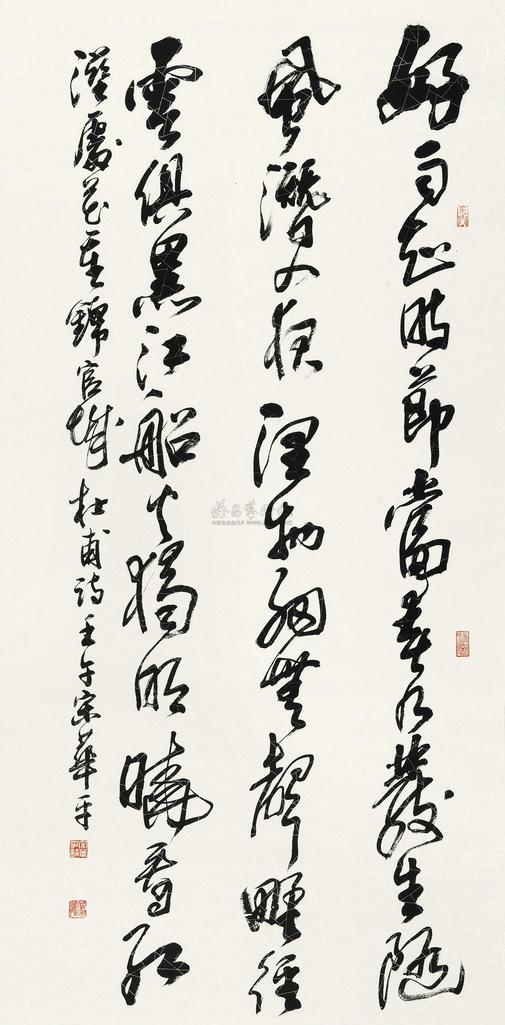 好雨知時節當春乃發生隨
風潛入夜潤物細無聲野徑
雲俱黑江船火獨明曉看紅
濕處花重錦官城 杜甫詩 壬午宋華平